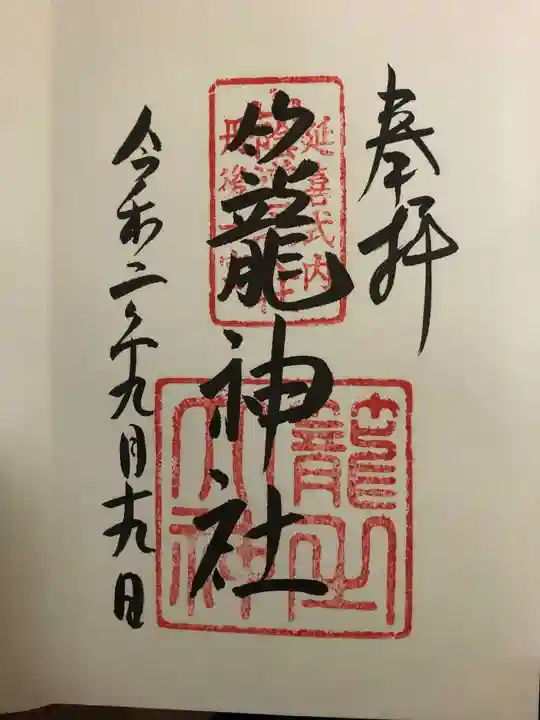 奉拝
延喜式内
丹後一宮
籠神社
籠之大神
令和二年九月十九日